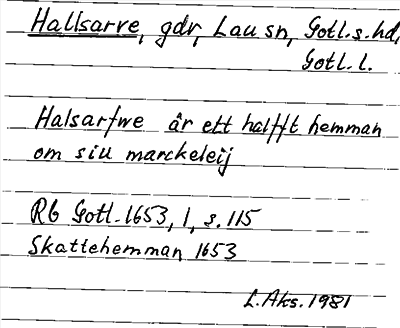 Hallsarve, gdr, Lau sn, Gotl. s. hd,
Gotl. l.
Halsarfwe är ett halfft hemman
om siu marckeleij
Rb Gotl. 1653, 1, s. 115
Skattehemman 1653
L. Aks. 1981